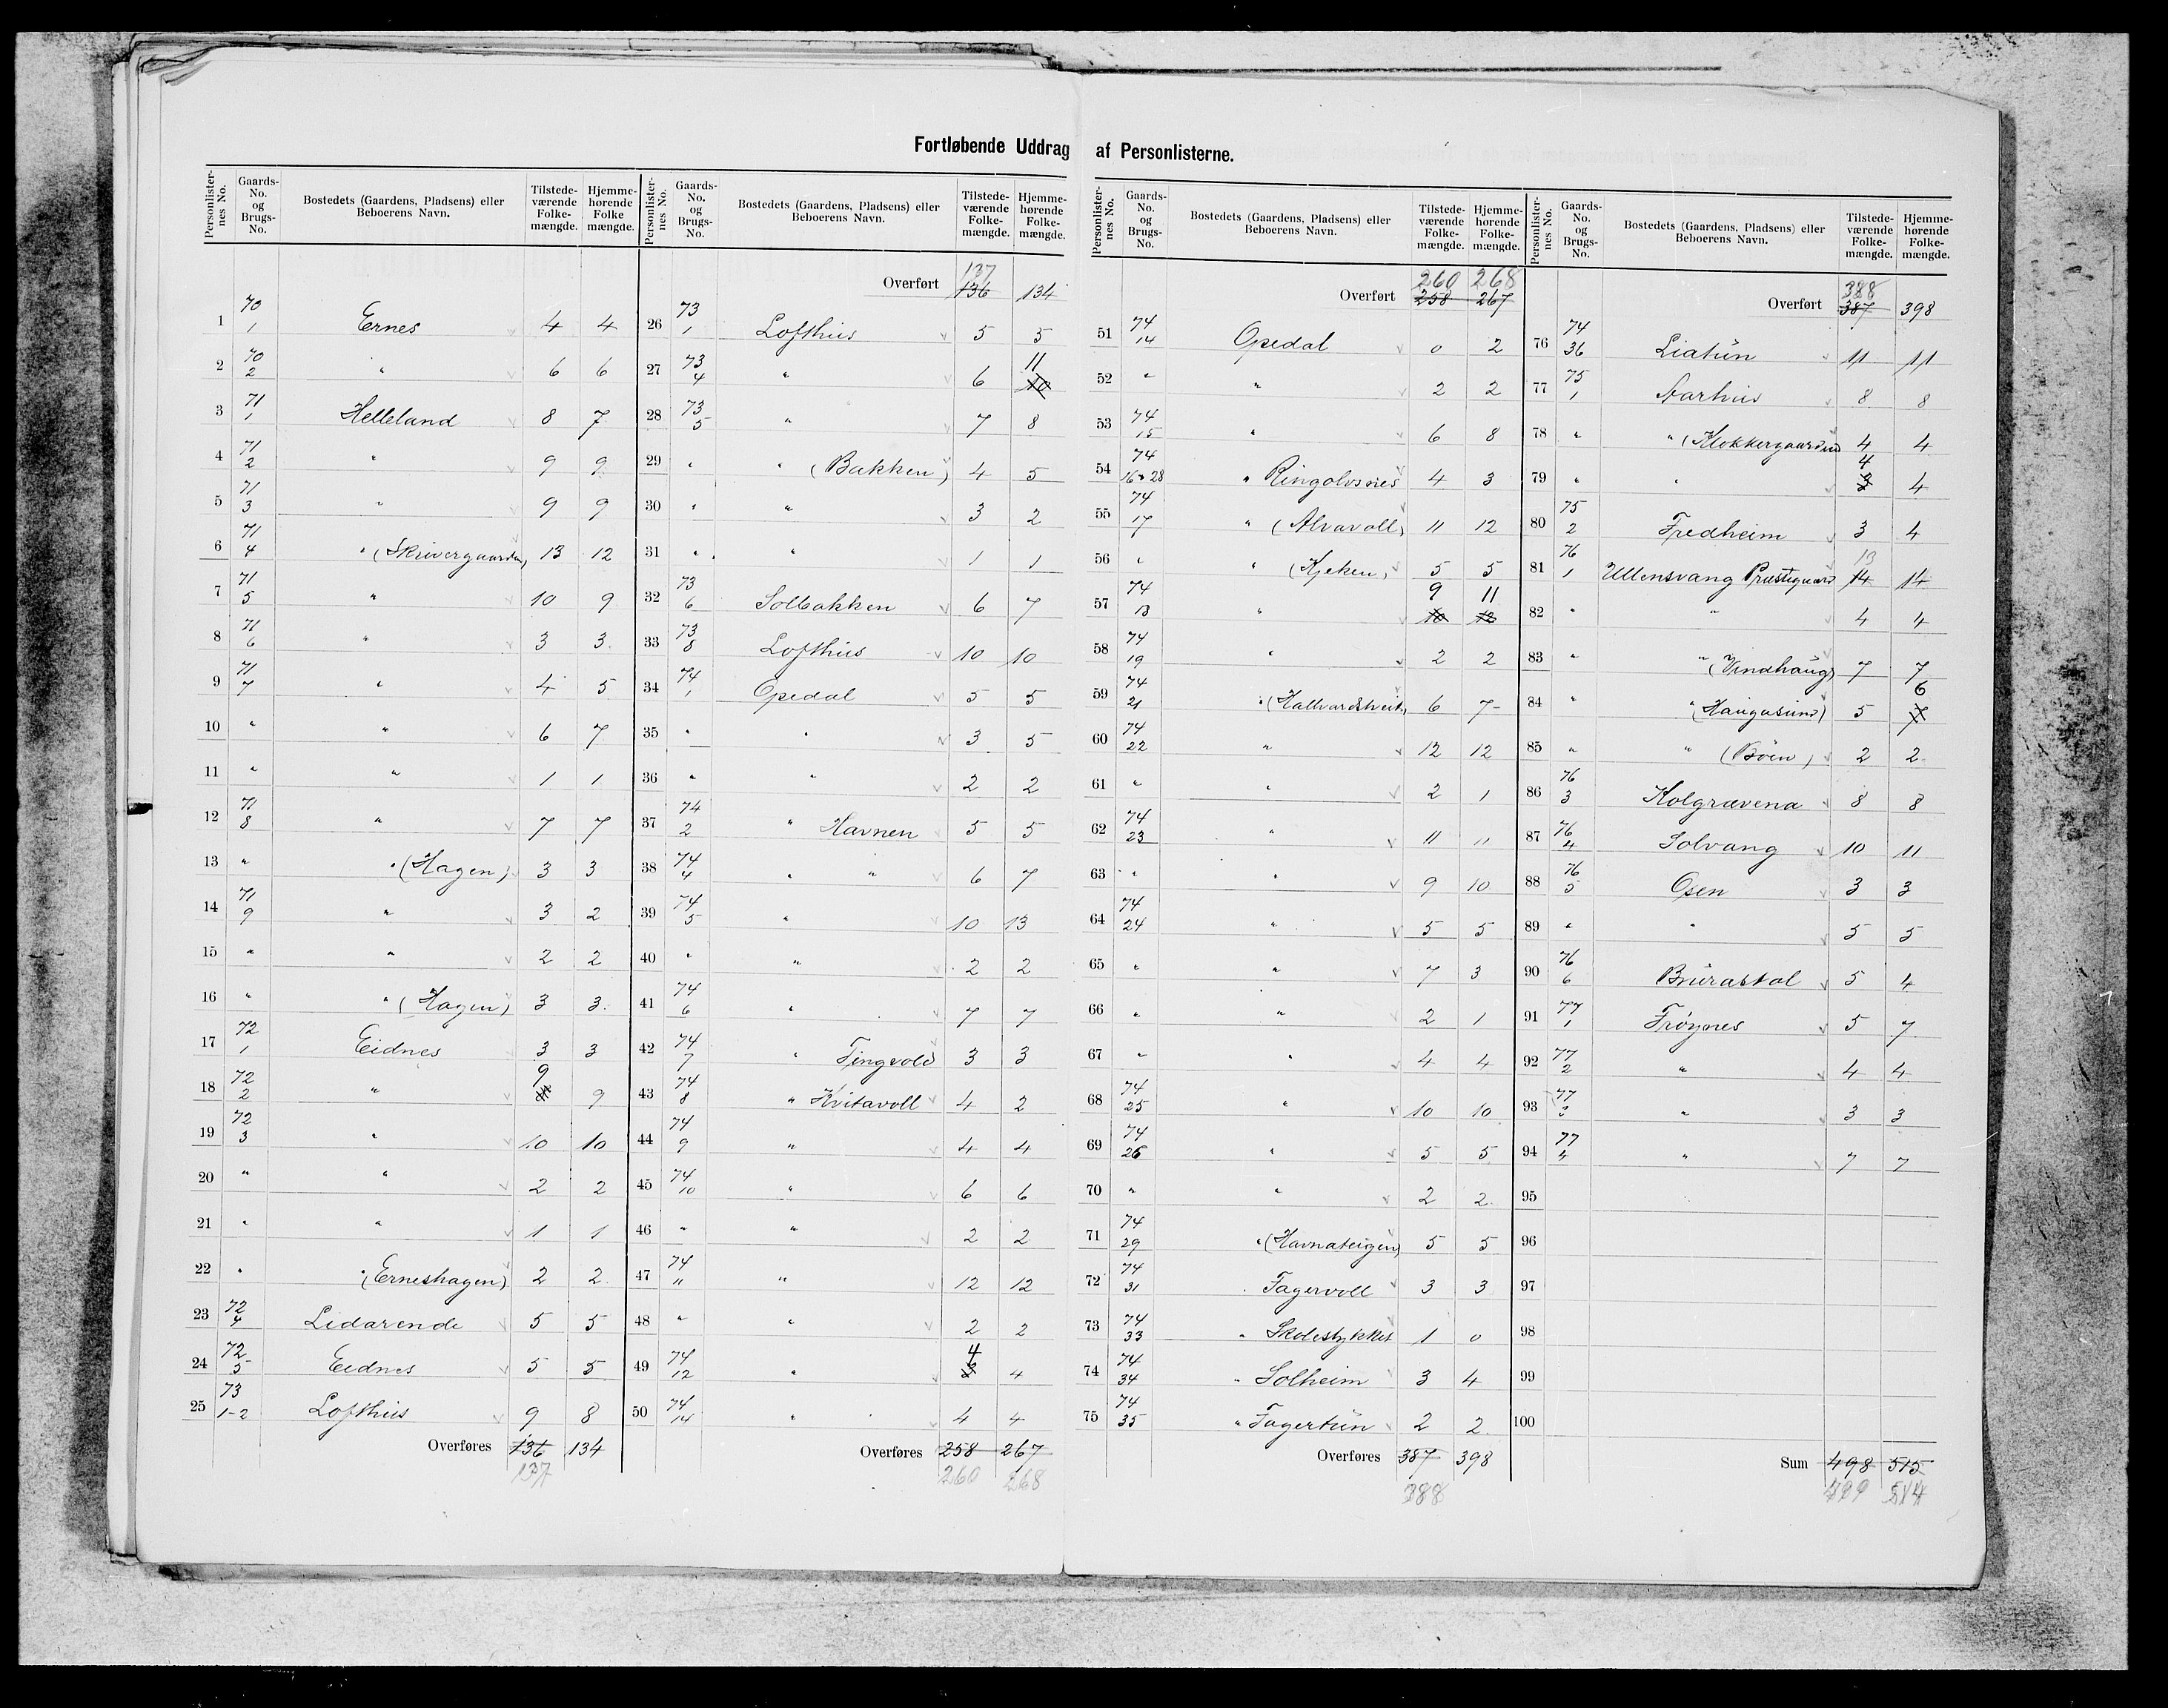 Fortløbende Uddrag af Personlisterne.
Personlister-nes No. | Gaards-No. og Brugs-No. | Bostedets (Gaardens, Pladsens) eller Beboerens Navn. | Tilstede-værende Folke-mængde. | Hjemme-hørende Folke mængde.
1 | 70 1 | Ernes | 4 | 4
2 | 70 2 | " | 6 | 6
3 | 71 1 | Helleland | 8 | 7
4 | 71 2 | " | 9 | 9
5 | 71 3 | " | 9 | 9
6 | 71 4 | " (Skrivergaarden) | 13 | 12
7 | 71 5 | " | 10 | 9
8 | 71 6 | " | 3 | 3
9 | 71 7 | " | 4 | 5
10 | " | " | 6 | 7
11 | " | " | 1 | 1
12 | 71 8 | " | 7 | 7
13 | " | " (Hagen) | 3 | 3
14 | 71 9 | " | 3 | 2
15 | " | " | 2 | 2
16 | " | " (Hagen) | 3 | 3
17 | 72 1 | Eidnes | 3 | 3
18 | 72 2 | " | 9 | 9
19 | 72 3 | " | 10 | 10
20 | " | " | 2 | 2
21 | " | " | 1 | 1
22 | " | " (Erneshagen) | 2 | 2
23 | 72 4 | Lidarende | 5 | 5
24 | 72 5 | Eidnes | 5 | 5
25 | 73 1-2 | Lofthus | 9 | 8
Overføres 136 134
137
Personlister-nes No. | Gaards-No. og Brugs-No. | Bostedets (Gaardens, Pladsens) eller Beboerens Navn. | Tilstede-værende Folke-mængde. | Hjemme-hørende Folke-mængde.
137
Overført 136 134
26 | 73 1 | Lofthus | 5 | 5
27 | 73 4 | " | 6 | 11 10
28 | 73 5 | " | 7 | 8
29 | " | " (Bakken) | 4 | 5
30 | " | " | 3 | 2
31 | " | " | 1 | 1
32 | 73 6 | Solbakken | 6 | 7
33 | 73 8 | Lofthus | 10 | 10
34 | 74 1 | Opedal | 5 | 5
35 | " | " | 3 | 5
36 | " | " | 2 | 2
37 | 74 2 | " Havnen | 5 | 5
38 | 74 4 | " " | 6 | 7
39 | 74 5 | " | 10 | 13
40 | " | " | 2 | 2
41 | 74 6 | " | 7 | 7
42 | 74 7 | " Tingvold | 3 | 3
43 | 74 8 | " Kvitavoll | 4 | 2
44 | 74 9 | " | 4 | 4
45 | 74 10 | " | 6 | 6
46 | " | " | 2 | 2
47 | 74 11 | " | 12 | 12
48 | " | " | 2 | 2
49 | 74 12 | " | 4 3 | 4
50 | 74 14 | " | 4 | 4
Overføres 258 267
260 268
Personlister-nes No. | Gaards-No. og Brugs-No. | Bostedets (Gaardens, Pladsens) eller Beboerens Navn. | Tilstede-værende Folke-mængde. | Hjemme-hørende Folke-mængde.
260 268
Overført 258 267
51 | 74 14 | Opedal | 0 | 2
52 | " | " | 2 | 2
53 | 74 15 | " | 6 | 8
54 | 74 16 " 28 | " Ringolvsnes | 4 | 3
55 | 74 17 | " (Alvavoll) | 11 | 12
56 | " | " (Kjeken) | 5 | 5
57 | 74 18 | " | 9 10 | 11 12
58 | 74 19 | " | 2 | 2
59 | 74 21 | " (Hallvardstveit) | 6 | 7
60 | 74 22 | " | 12 | 12
61 | " | " | 2 | 1
62 | 74 23 | " | 11 | 11
63 | " | " | 9 | 10
64 | 74 24 | " | 5 | 5
65 | " | " | 7 | 3
66 | " | " | 2 | 1
67 | " | " | 4 | 4
68 | 74 25 | " | 10 | 10
69 | 74 26 | " | 5 | 5
70 | " | " | 2 | 2
71 | 74 29 | " (Havnateigen) | 5 | 5
72 | 74 31 | " Fagervoll | 3 | 3
73 | 74 33 | " Skolestykket | 1 | 0
74 | 74 34 | " Solheim | 3 | 4
75 | 74 35 | " Fagertün | 2 | 2
Overføres 387 398
388
Personlister-nes No. | Gaards-No. og Brugs-No. | Bostedets (Gaardens, Pladsens) eller Beboerens Navn. | Tilstede-værende Folke-mængde. | Hjemme-hørende Folke-mængde.
388
Overført 387 398
76 | 74 36 | Liatün | 11 | 11
77 | 75 1 | Aarhus | 8 | 8
78 | " | " (Klokkergaarden) | 4 | 4
79 | " | " | 4 3 | 4
80 | 75 2 | Fredheim | 3 | 4
81 | 76 1 | Ullensvang Præstegaard | 13 14 | 14
82 | " | " | 4 | 4
83 | " | " (Vindhaug) | 7 | 7
84 | " | " (Haugasund) | 5 | 6 7
85 | " | " (Böen) | 2 | 2
86 | 76 3 | Kolgravena | 8 | 8
87 | 76 4 | Solvang | 10 | 11
88 | 76 5 | Osen | 3 | 3
89 | " | " | 5 | 5
90 | 76 6 | Brurastol | 5 | 4
91 | 77 1 | Frøynes | 5 | 7
92 | 77 2 | " | 4 | 4
93 | 77 3 | " | 3 | 3
94 | 77 4 | " | 7 | 7
95
96
97
98
99
100
Sum 498 515
499 514